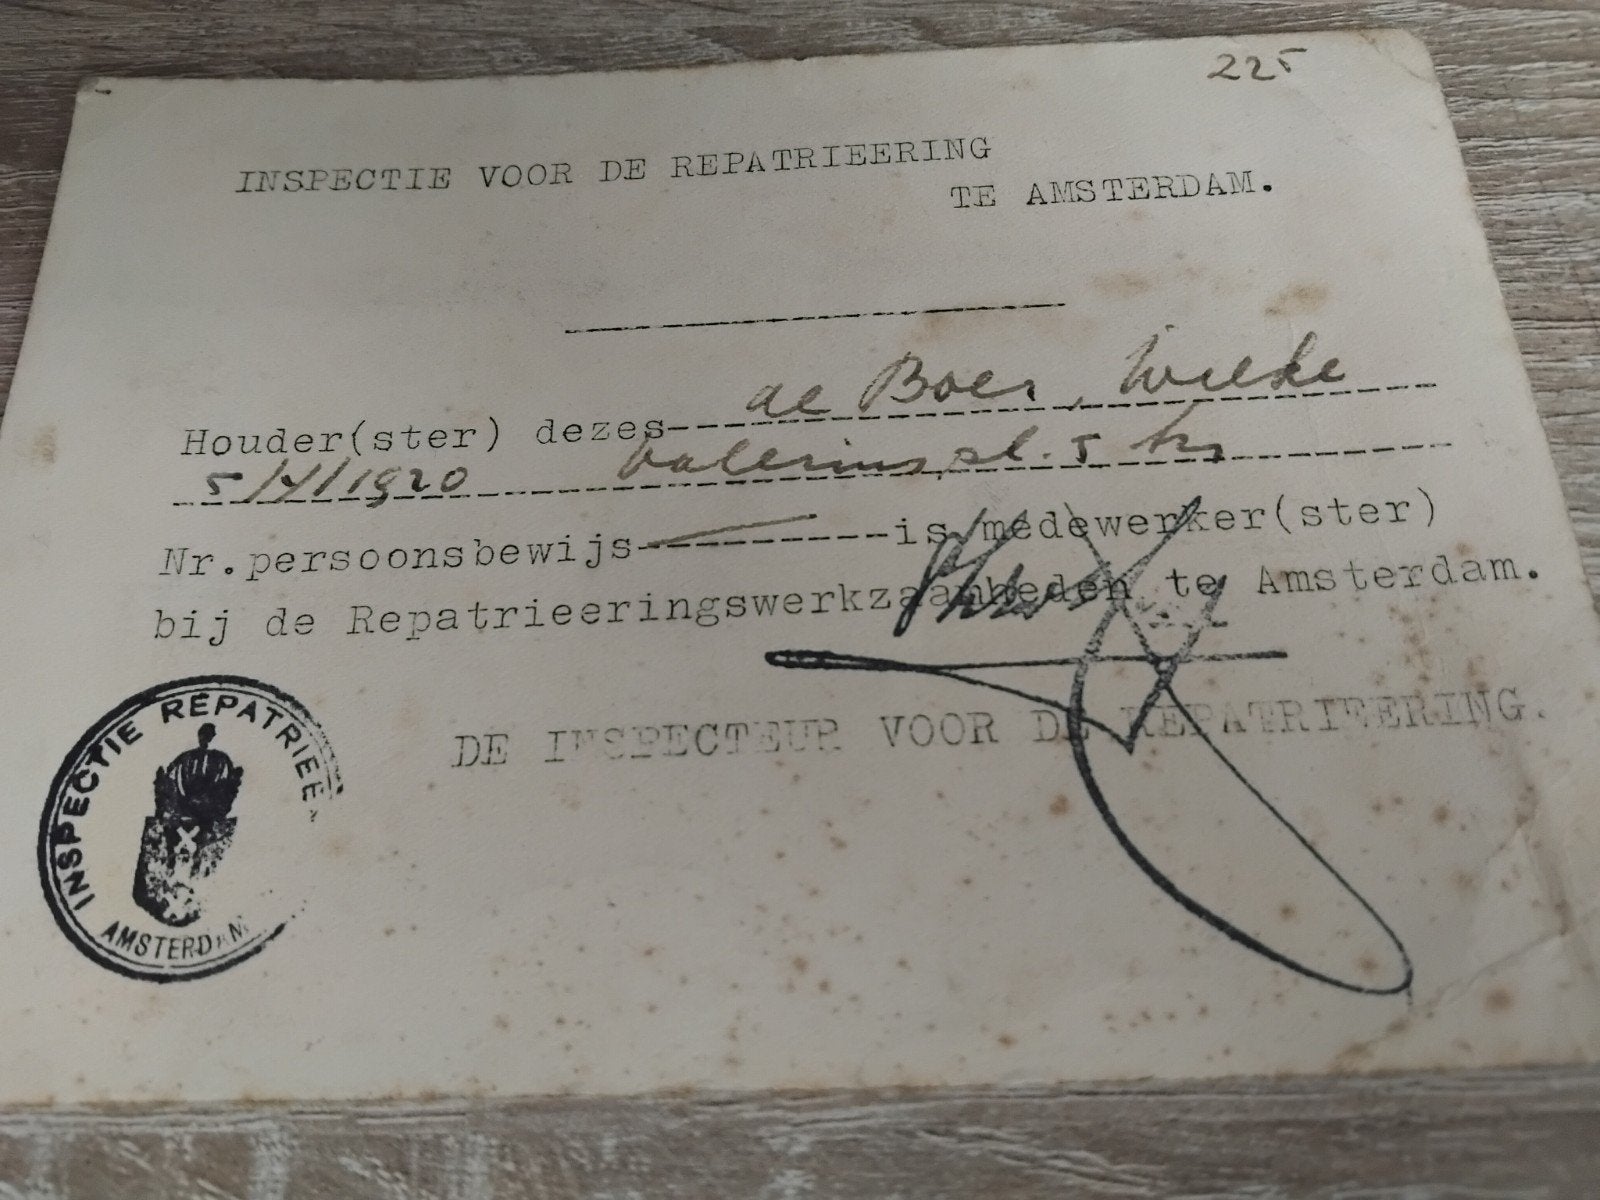 225
INSPECTIE VOOR DE REPATRIEERING
TE AMSTERDAM.
Houder(ster) dezes de Boer, Wiebe
5/4/1920 Valeriuspl. 5 hs
Nr.persoonsbewijs---------is medewerker(ster)
bij de Repatrieeringswerkzaamheden te Amsterdam.
DE INSPECTEUR VOOR DE REPATRIEERING.
INSPECTIE REPATRIEE
AMSTERDAM